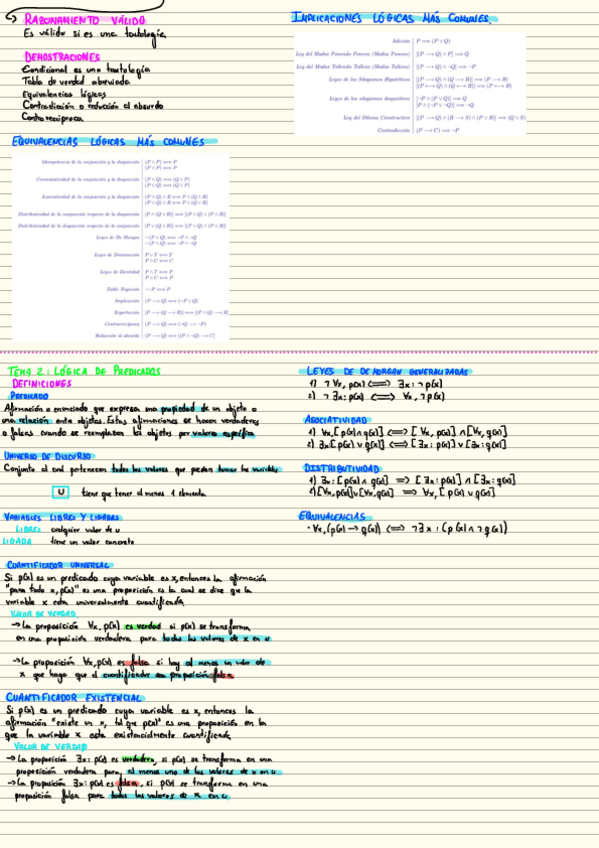 RAZONAMIENTO VÁLIDO
Es válido si es una tautología.
DEMOSTRACIONES
Condicional es una tautología
Tabla de verdad abreviada
Equivalencias lógicas
Contradicción o reducción al absurdo
Contrarecíproca
EQUIVALENCIAS LÓGICAS MÁS COMUNES
Idempotencia de la conjunción y la disyunción (P ∧ P) ⟺ P
(P ∨ P) ⟺ P
Conmutatividad de la conjunción y la disyunción (P ∧ Q) ⟺ (Q ∧ P)
(P ∨ Q) ⟺ (Q ∨ P)
Asociatividad de la conjunción y la disyunción (P ∧ Q) ∧ R ⟺ P ∧ (Q ∧ R)
(P ∨ Q) ∨ R ⟺ P ∨ (Q ∨ R)
Distributividad de la conjunción respecto de la disyunción [P ∧ (Q ∨ R)] ⟺ [(P ∧ Q) ∨ (P ∧ R)]
Distributividad de la disyunción respecto de la conjunción [P ∨ (Q ∧ R)] ⟺ [(P ∨ Q) ∧ (P ∨ R)]
Leyes de De Morgan ¬(P ∨ Q) ⟺ ¬P ∧ ¬Q
¬(P ∧ Q) ⟺ ¬P ∨ ¬Q
Leyes de Dominación P ∨ T ⟺ T
P ∧ C ⟺ C
Leyes de Identidad P ∧ T ⟺ P
P ∨ C ⟺ P
Doble Negación ¬¬P ⟺ P
Implicación (P ⟶ Q) ⟺ (¬P ∨ Q)
Exportación [P ⟶ (Q ⟶ R)] ⟺ [(P ∧ Q) ⟶ R]
Contrarrecíproca (P ⟶ Q) ⟺ (¬Q ⟶ ¬P)
Reducción al absurdo (P ⟶ Q) ⟺ [(P ∧ ¬Q) ⟶ C]
IMPLICACIONES LÓGICAS MÁS COMUNES.
Adición P ⟹ (P ∨ Q)
Ley del Modus Ponendo Ponens (Modus Ponens) [(P ⟶ Q) ∧ P] ⟹ Q
Ley del Modus Tollendo Tollens (Modus Tollens) [(P ⟶ Q) ∧ ¬Q] ⟹ ¬P
Leyes de los Silogismos Hipotéticos [(P ⟶ Q) ∧ (Q ⟶ R)] ⟹ (P ⟶ R)
[(P ⟷ Q) ∧ (Q ⟷ R)] ⟹ (P ⟷ R)
Leyes de los silogismos disyuntivos [¬P ∧ (P ∨ Q)] ⟹ Q
[P ∧ (¬P ∨ ¬Q)] ⟹ ¬Q
Ley del Dilema Constructivo [(P ⟶ Q) ∧ (R ⟶ S) ∧ (P ∨ R)] ⟹ (Q ∨ S)
Contradicción (P ⟶ C) ⟹ ¬P
TEMA 2: LÓGICA DE PREDICADOS
DEFINICIONES
PREDICADO
Afirmación o enunciado que expresa una propiedad de un objeto o
una relación entre objetos. Estas afirmaciones se hacen verdaderas
o falsas cuando se reemplazan los objetos por valores específica
UNIVERSO DE DISCURSO
Conjunto al cual pertenecen todos los valores que puedan tomar las variables
U tiene que tener al menos 1 elemento
VARIABLES LIBRES Y LIGADAS
LIBRES cualquier valor de u
LIGADA tiene un valor concreto
CUANTIFICADOR UNIVERSAL
Si p(x) es un predicado cuya variable es x, entonces la afirmación
"para todo x, p(x)" es una proposición en la cual se dice que la
variable x esta universalmente cuantificada.
VALOR DE VERDAD
→ La proposición ∀x, p(x) es verdad si p(x) se transforma
en una proposición verdadera para todos los valores de x en u
→ La proposición ∀x, p(x) es falsa si hay al menos un valor de
x que haga que el cuantificador sea proposición falsa.
CUANTIFICADOR EXISTENCIAL
Si p(x) es un predicado cuya variable es x, entonces la
afirmación "existe un x, tal que p(x)" es una proposición en la
que la variable x esta existencialmente cuantificada
VALOR DE VERDAD
→ La proposición ∃x: p(x) es verdadera, si p(x) se transforma en una
proposición verdadera para al menos uno de los valores de x en u
→ La proposición ∃x: p(x) es falsa, si p(x) se transforma en una
proposición falsa para todos los valores de x en u
LEYES DE DE MORGAN GENERALIZADAS
1) ¬∀x, p(x) ⟺ ∃x: ¬p(x)
2) ¬∃x: p(x) ⟺ ∀x, ¬p(x)
ASOCIATIVIDAD
1) ∀x, [p(x) ∧ q(x)] ⟺ [∀x, p(x)] ∧ [∀x, q(x)]
2) ∃x: [p(x) ∨ q(x)] ⟺ [∃x: p(x)] ∨ [∃x: q(x)]
DISTRIBUTIVIDAD
1) ∃x: [p(x) ∧ q(x)] ⟹ [∃x: p(x)] ∧ [∃x: q(x)]
2) [∀x, p(x)] ∨ [∀x, q(x)] ⟹ ∀x, [p(x) ∨ q(x)]
EQUIVALENCIAS
· ∀x, (p(x) → q(x)) ⟺ ¬∃x: (p(x) ∧ ¬q(x))